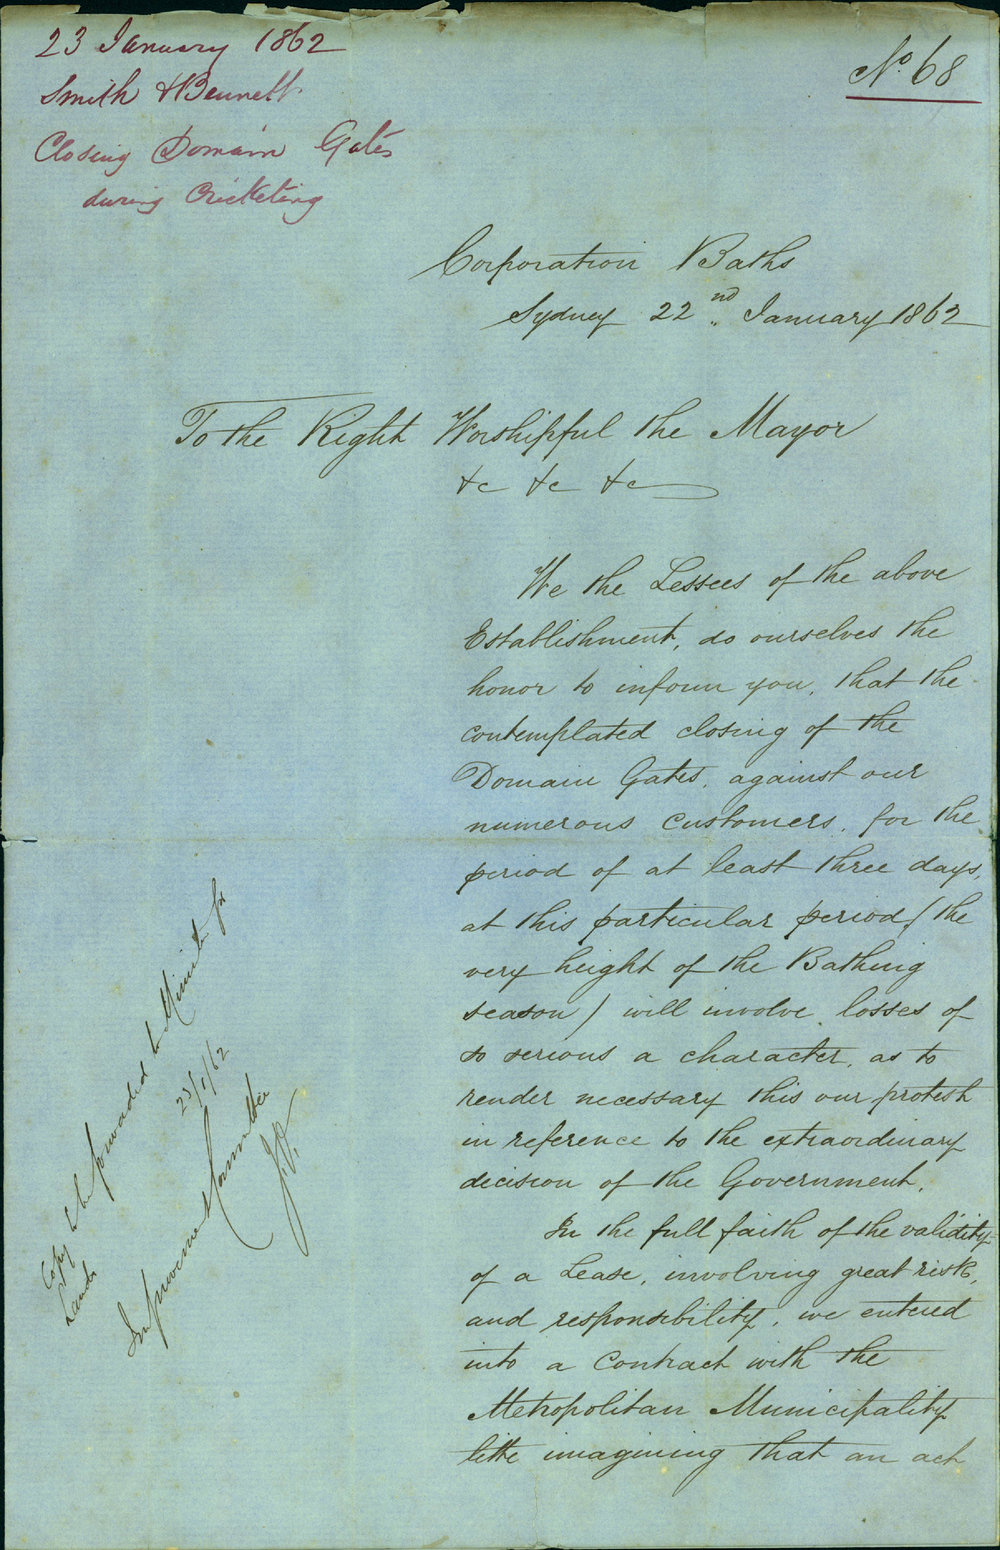 23 January 1862
Smith & Bennett
Closing Domain Gates
during Cricketing
No. 68
Corporation Baths
Sydney 22nd January 1862
To the Right Worshipful the Mayor
&c &c &c
We the Lessees of the above
Establishment, do ourselves the
honor to inform you, that the
contemplated closing of the
Domain Gates, against our
numerous customers, for the
period of at least three days,
at this particular period (the
very height of the Bathing
season) will involve losses of
so serious a character, as to
render necessary this our protest
in reference to the extraordinary
decision of the Government.
In the full faith of the validity
of a Lease, involving great risk,
and responsibility, we entered
into a Contract with the
Metropolitan Municipality
little imagining that an act
Copy to be forwarded to Minister for
Lands
23/1/62
Improvement Committee